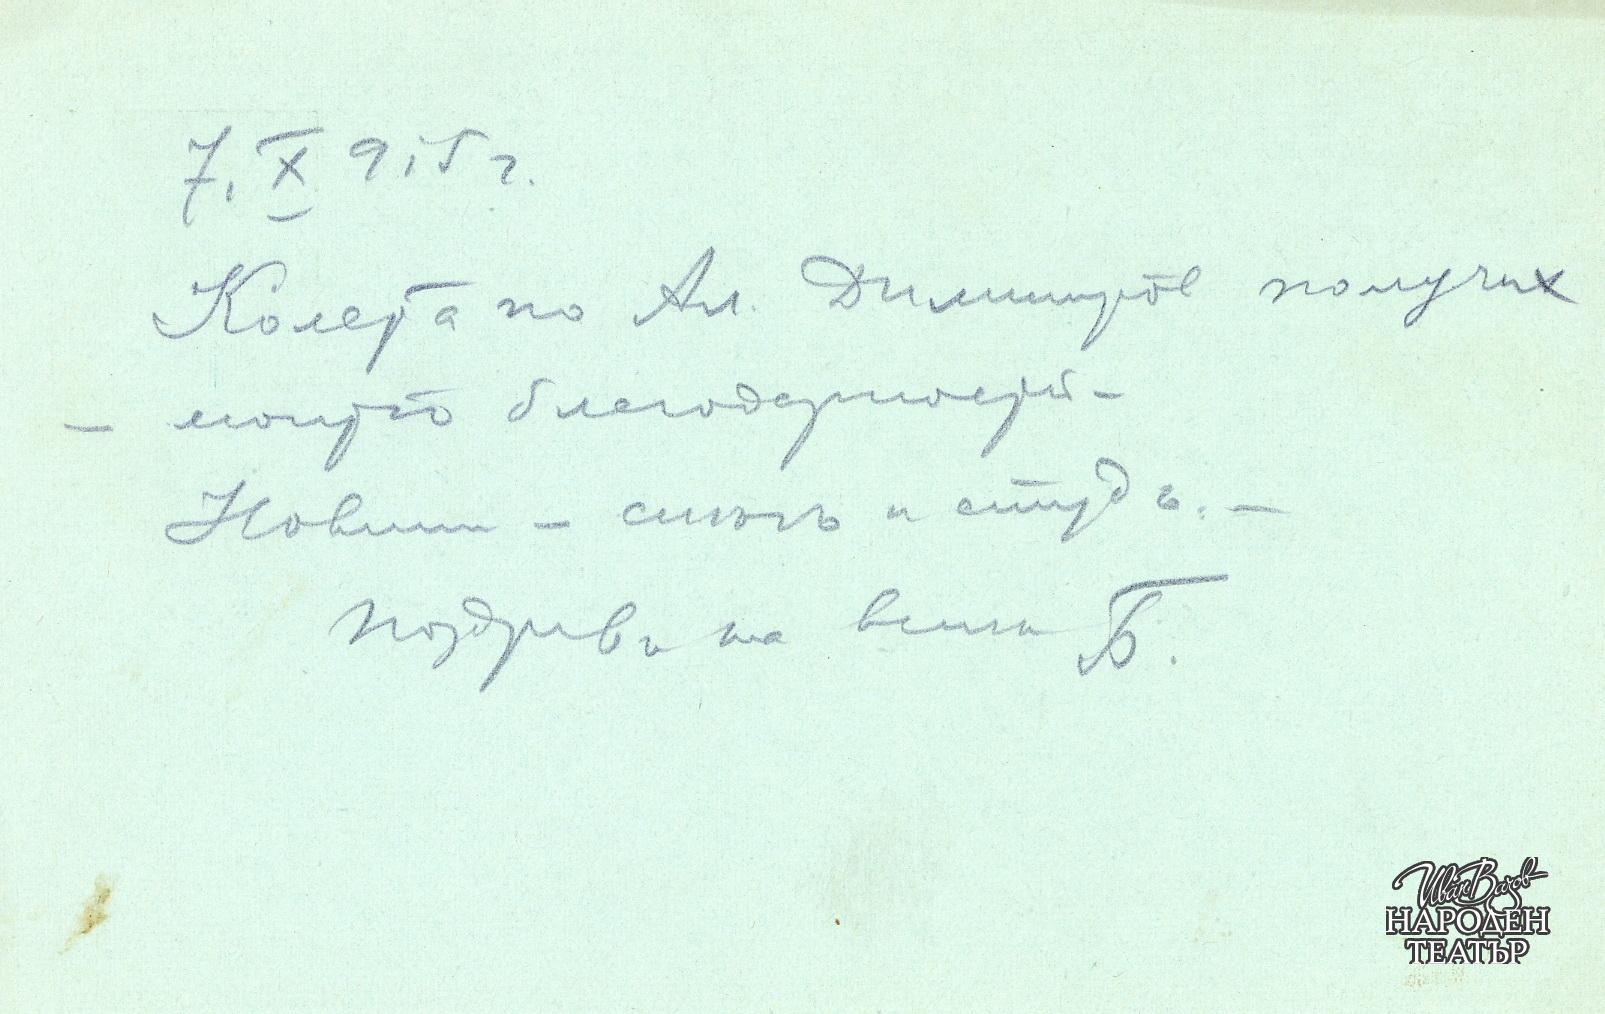 7. X 915 г.
Колета по Ал. Димитров получих
- много благодарности -
Новини - сняг и студъ. -
Поздрави на всички Б.
Иван Вазов
НАРОДЕН
ТЕАТЪР